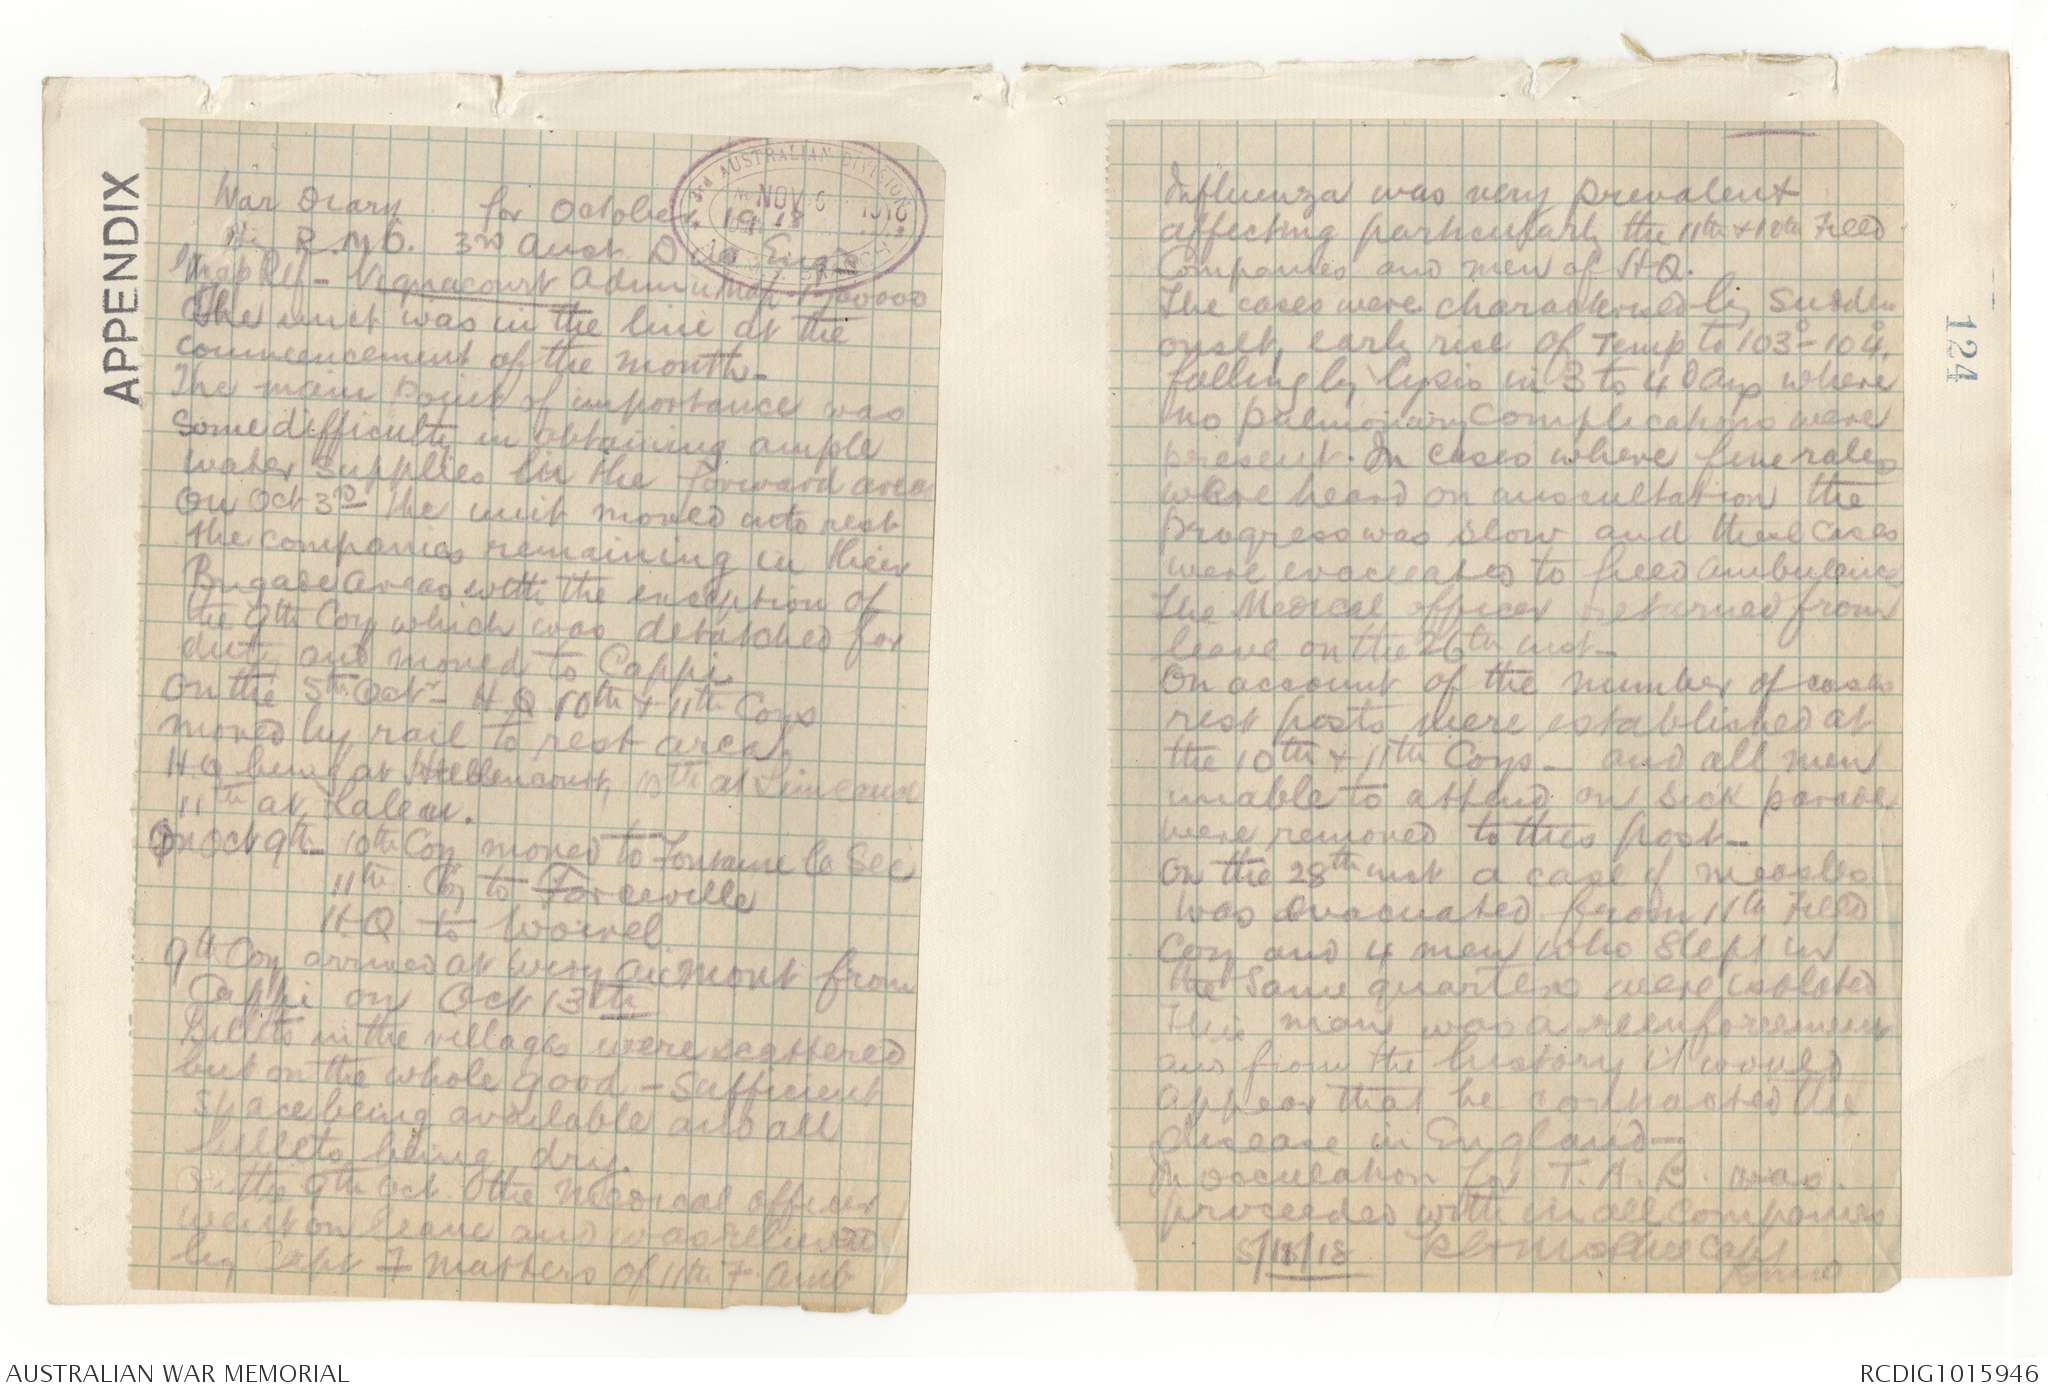 APPENDIX
3rd AUSTRALIAN DIVISION
NOV 6 1918
War Diary for October 1918
R.M.O. 3rd Aust. Div Engrs
Map Ref - Vignacourt Admin Map 1/100000
The unit was in the line at the
commencement of the month -
The main point of importance was
some difficulty in obtaining ample
water supplies in the Forward area
On Oct 3rd the unit moved into rest
the companies remaining in their
Brigade areas with the exception of
the 9th Coy which was detached for
duty and moved to Cappi.
On the 5th Oct - H.Q 10th & 11th Coys
moved by rail to rest area,
HQ being at Hellencourt, 10th at Limeux
11th at
On Oct 9th - 10th Coy moved to Fontaine le Sec
11th Coy to Forceville
HQ to Woirel
9th Coy arrived at Wiry au Mont from
Cappi on Oct 13th
Billets in the villages were scattered
but on the whole good - sufficient
space being available and all
billets being dry.
On the 9th Oct. the Medical officer
went on leave and was relieved
by Capt F Matters of 11th F. Amb
Influenza was very prevalent
affecting particularly the 11th & 10th Field
Companies and men of H.Q.
The cases were characterised by sudden
onset, early rise of Temp to 103° - 104°,
falling by lysis in 3 to 4 days where
no pulmonary complications were
present. In cases where fine rales
were heard on auscultation the
progress was slow and these cases
were evacuated to field ambulance
The Medical officer returned from
leave on the 26th inst -
On account of the number of cases
rest posts were established at
the 10th & 11th Coys - and all men
unable to attend on sick parade
were removed to this post -
On the 28th inst a case of measles
was evacuated from 11th Field
Coy and 4 men who slept in
the same quarters were isolated
This man was a reenforcement
and from the history it would
appear that he contracted the
disease in England -
Innoculation for T.A.B. was
proceeded with in all Companies
5/11/18 Capt
124
AUSTRALIAN WAR MEMORIAL
RCDIG1015946